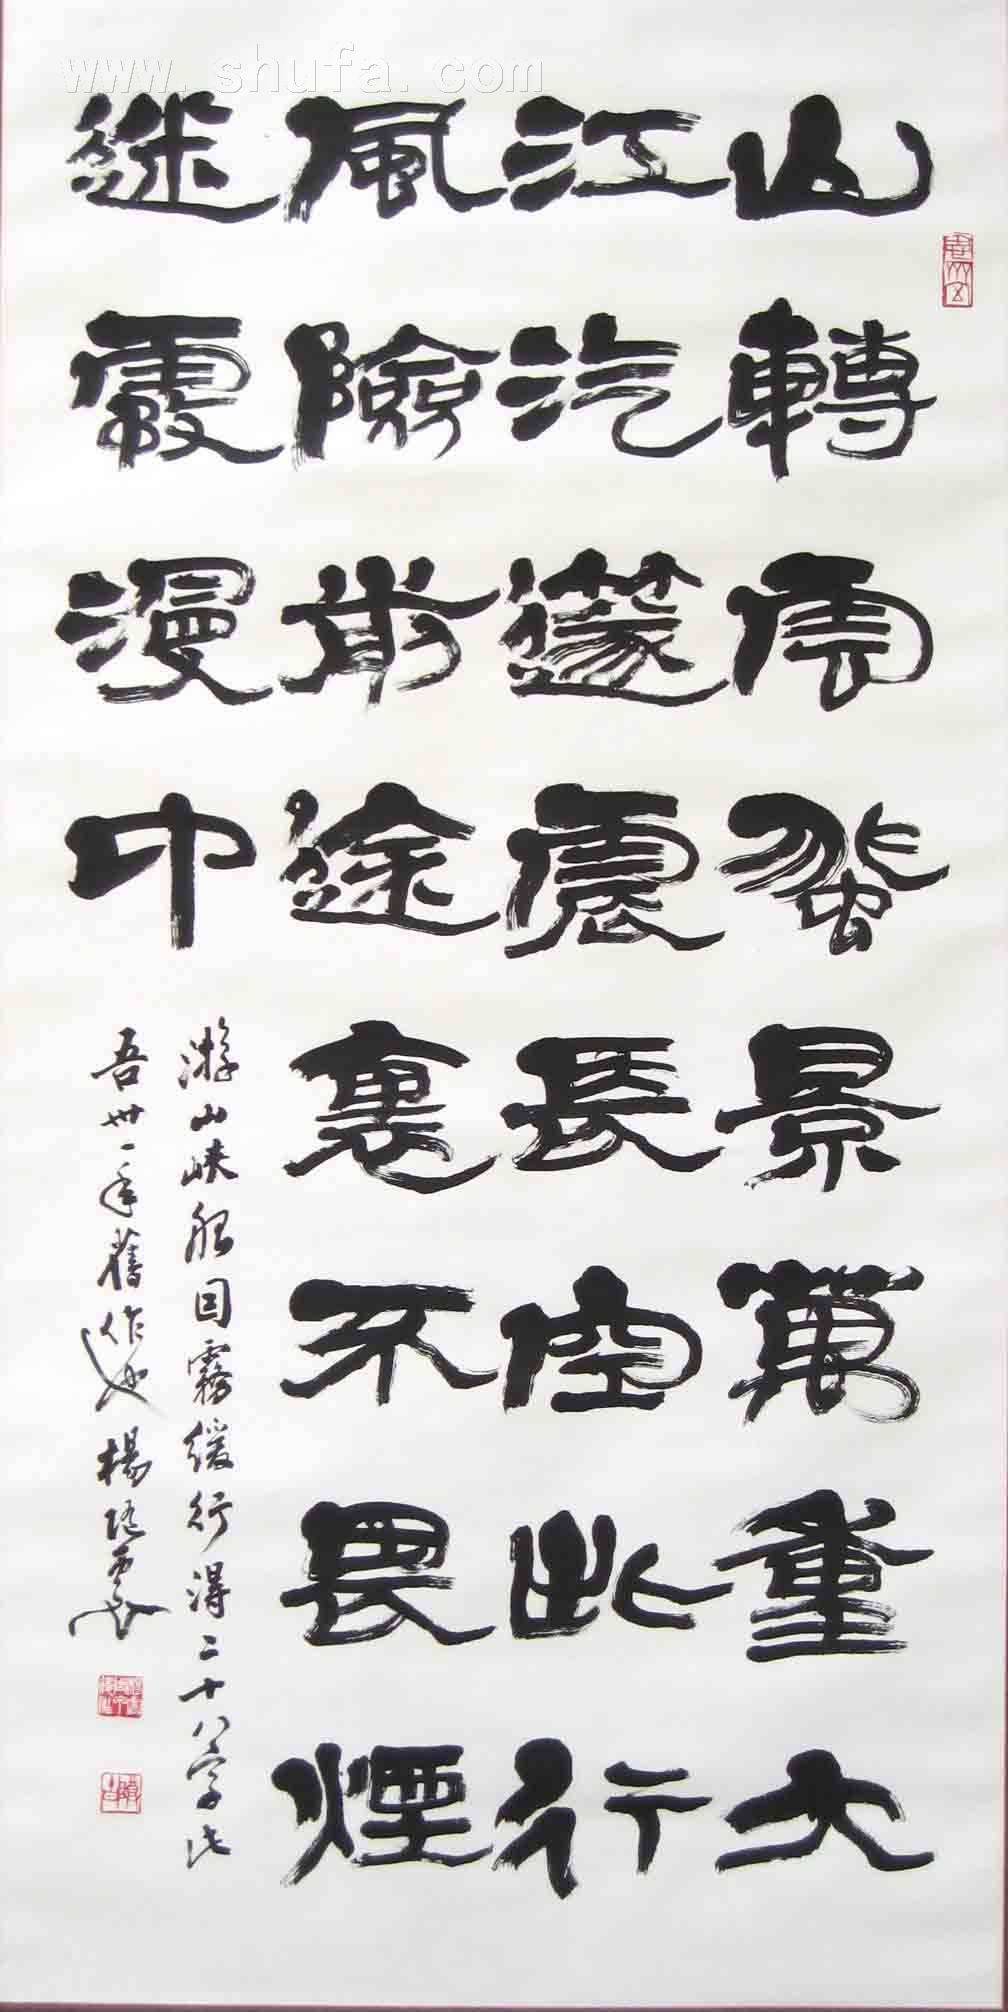 山轉雲飛景萬重大
江汽邃處長空此行
風險前途裏不畏煙
迷霞漫中
游山峽船因霧緩行得二十八字此
吾卅一年舊作也楊陸雲
www.shufa.com